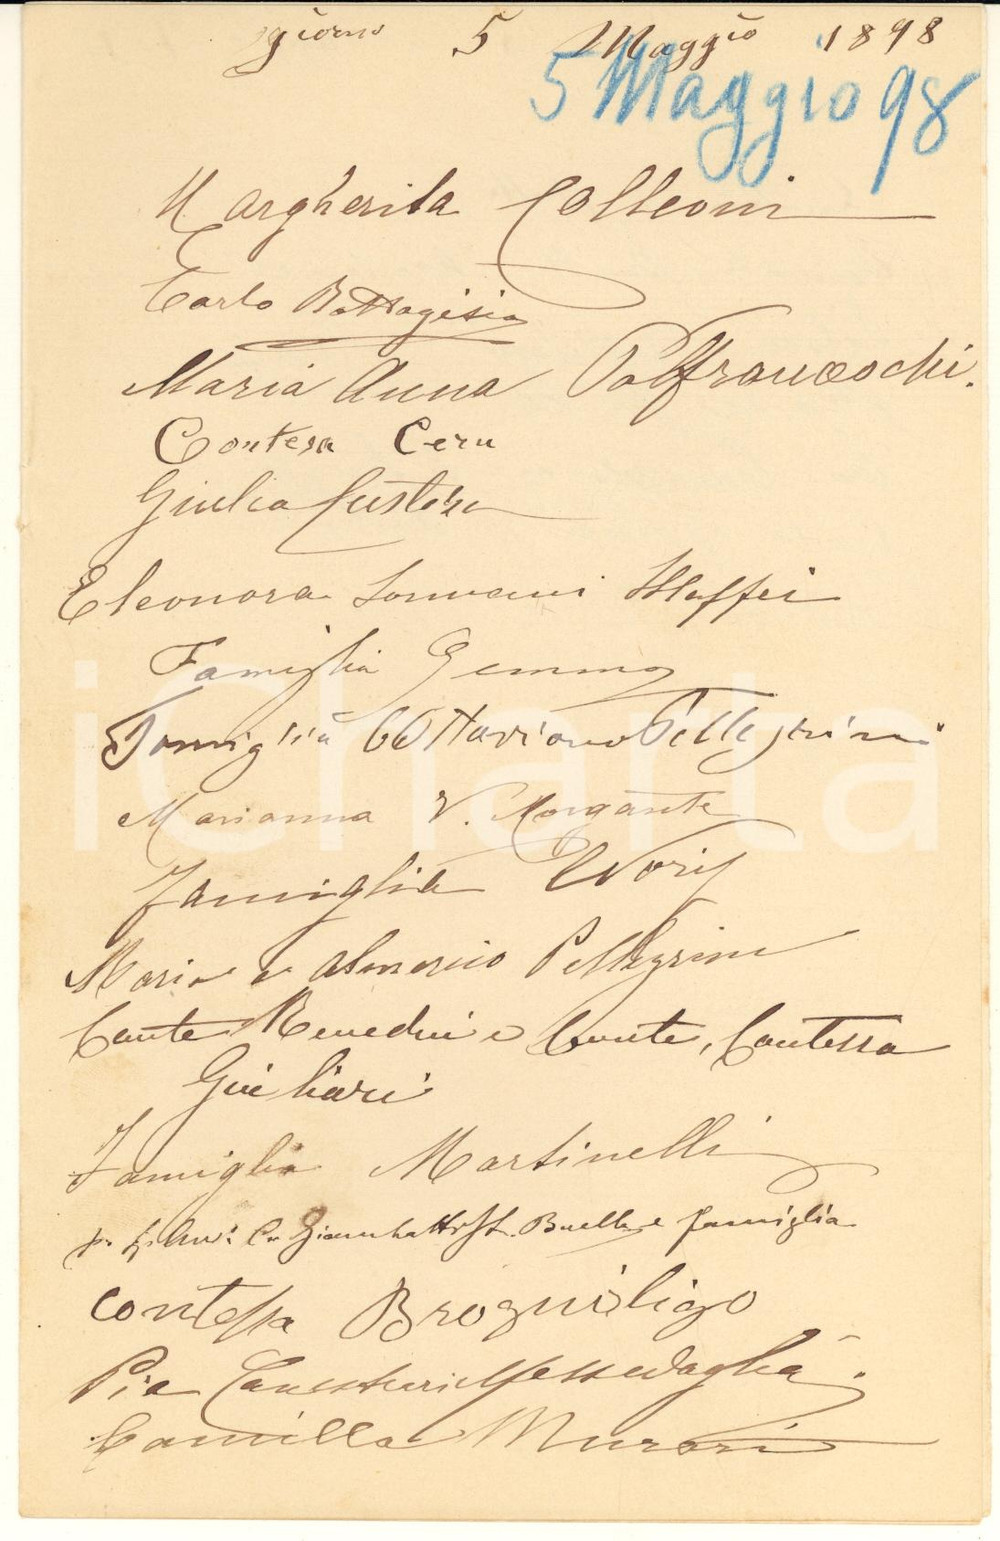 giorno 5 Maggio 1898
5 Maggio 98
Margherita Colleoni
Carlo Battagisia
Maria Anna Palffranceschi.
Contesa Ceru
Giulia Custoza
Eleonora Maffei
Famiglia Gemma
Famiglia Ottaviano Pellegrini
Marianna V. Morgante
Famiglia
Maria e Almerico Pellegrini
Conte Benedui e Conte, Contessa
Giuliari
Famiglia Martinelli
e famiglia
Contessa Brognoligo
Pia Messedaglia.
Camilla Murari
iCharta